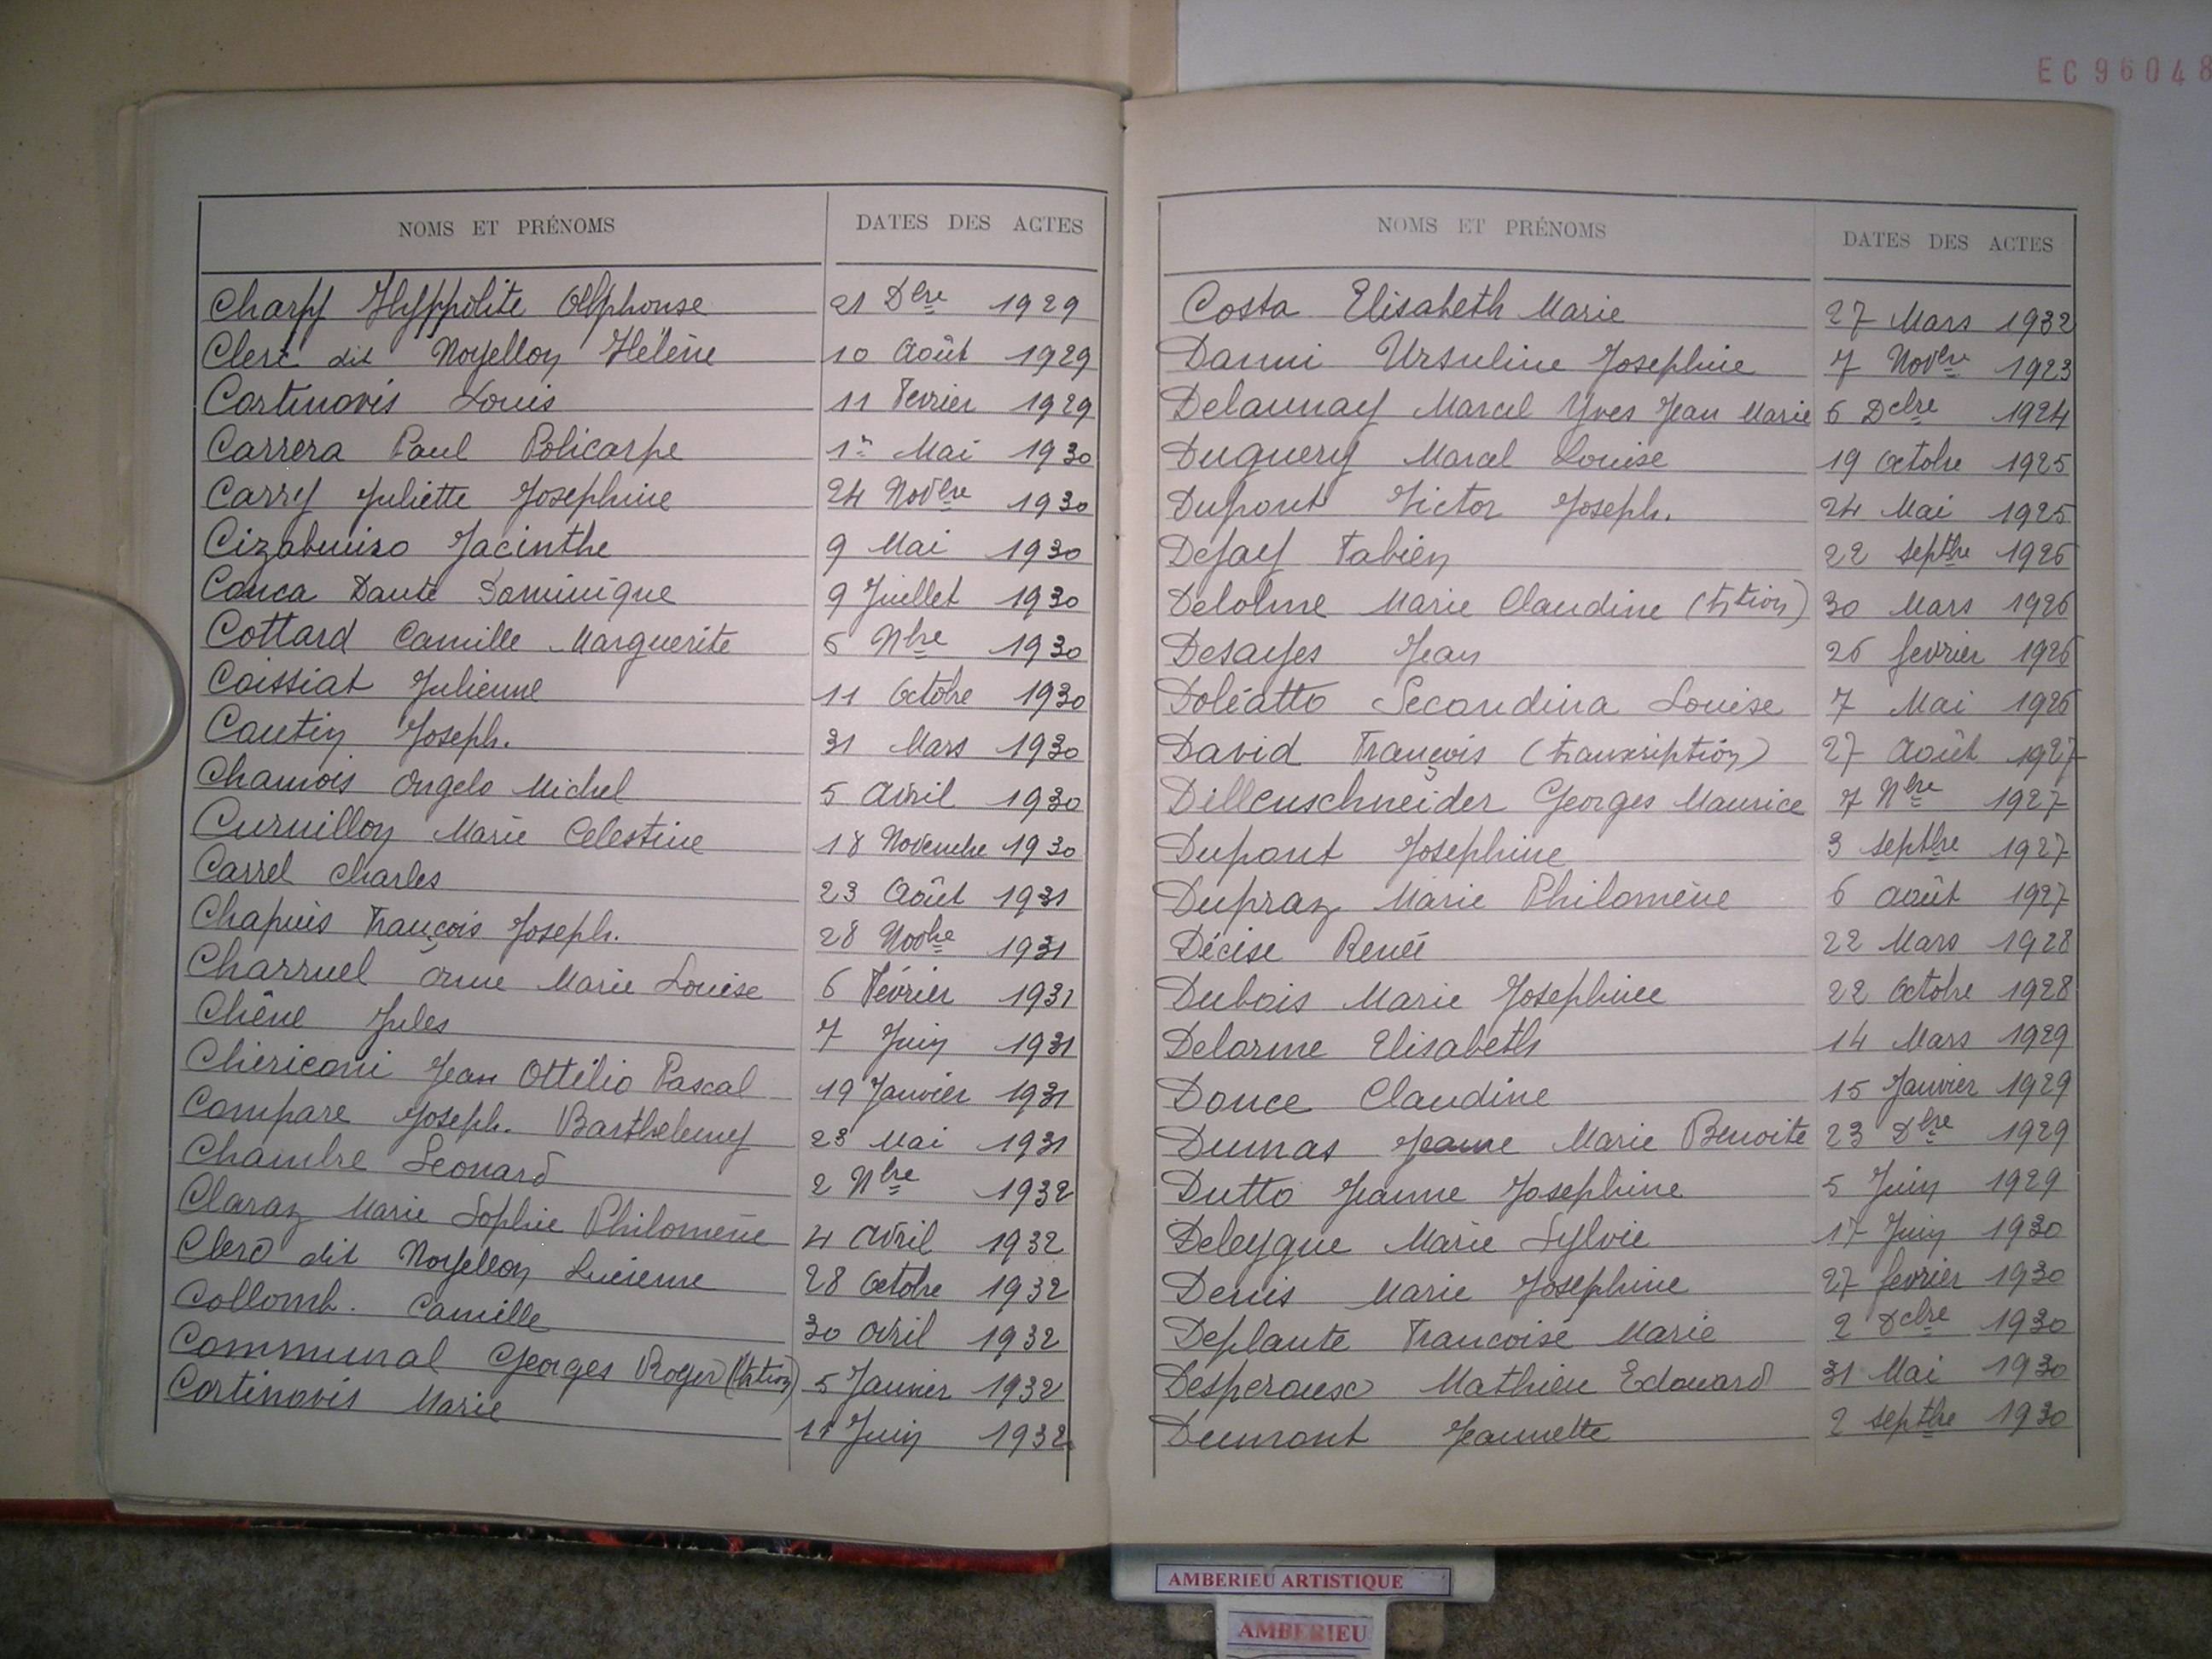 EC96048
NOMS ET PRÉNOMS DATES DES ACTES
Charpy Hyppolite Alphonse 21 Dbre 1929
Clerc dit Noyellon Hélène 10 Août 1929
Cortinovis Louis 11 Fevrier 1929
Carrera Paul Policarpe 1er Mai 1930
Carry Juliette Josephine 24 Novbre 1930
Jacinthe 9 Mai 1930
Dante Dominique 9 Juillet 1930
Cottard Camille Marguerite 6 Nbre 1930
Coissiat Julienne 11 Octobre 1930
Cautin Joseph. 31 Mars 1930
Chamois Angelo Michel 5 Avril 1930
Curnillon Marie Celestine 18 Novembre 1930
Carrel Charles 23 Août 1931
Chapuis François Joseph. 28 Novbre 1931
Charruel Anne Marie Louise 6 Février 1931
Chêne Jules 7 Juin 1931
Chericoni Jean Ottilio Pascal 19 Janvier 1931
Compare Joseph. Barthelemy 23 Mai 1931
Chambre Leonard 2 Nbre 1932
Claraz Marie Sophie Philomène 4 Avril 1932
Clerc dit Noyellon Lucienne 28 Octobre 1932
Collomb. Camille 30 Avril 1932
Communal Georges Roger (tr.tion) 5 Janvier 1932
Cortinovis Marie 11 Juin 1932
NOMS ET PRÉNOMS DATES DES ACTES
Costa Elisabeth Marie 27 Mars 1932
Danni Ursuline Josephine 7 Novbre 1923
Delaunay Marcel Yves Jean Marie 6 Dcbre 1924
Duguery Marcel Louise 19 Octobre 1925
Dupont Victor Joseph. 24 Mai 1925
Defay Fabien 22 Septbre 1926
Delolme Marie Claudine (tr.tion) 30 Mars 1926
Desayes Jean 26 fevrier 1926
Doléatto Secondina Louise 7 Mai 1926
David François (transcription) 27 Août 1927
Dillenschneider Georges Maurice 7 Nbre 1927
Dupont Josephine 3 Septbre 1927
Dupraz Marie Philomène 6 Août 1927
Décise Renée 22 Mars 1928
Dubois Marie Josephine 22 Octobre 1928
Delorme Elisabeth 14 Mars 1929
Douce Claudine 15 Janvier 1929
Dumas Jeanne Marie Benoite 23 Dbre 1929
Dutto Jeanne Josephine 5 Juin 1929
Deleygue Marie Sylvie 17 Juin 1930
Denis Marie Josephine 27 fevrier 1930
Deplante Francoise Marie 2 Dcbre 1930
Desperoux Mathieu Edouard 31 Mai 1930
Dumont Jeannette 2 Septbre 1930
AMBERIEU ARTISTIQUE
AMBERIEU